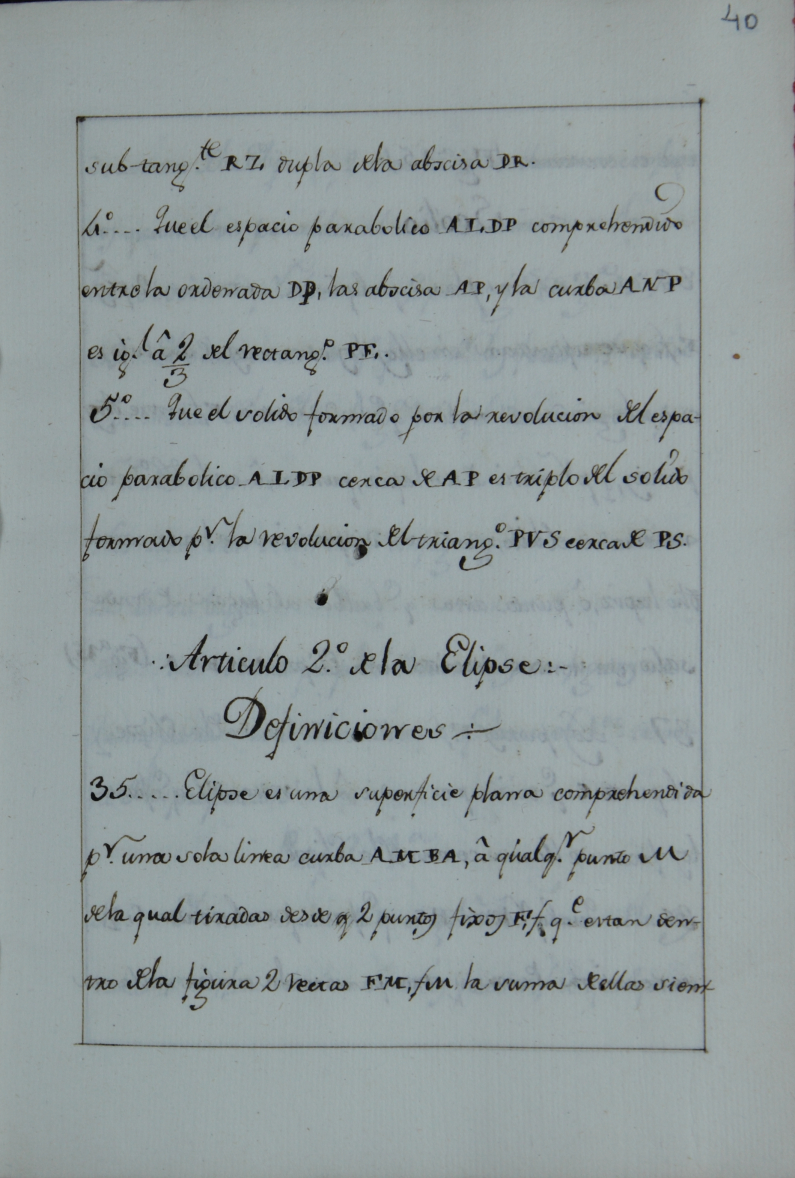 40
sub-tang.te RZ, dupla de la abscisa DR.
4.º... Que el espacio parabolico ALDP comprehendido
entre la ordenada DP, las abscisa AP, y la curba ANP
es ig.l â 2/3 del rectang.º PF..
5.º... Que el solido formado por la revolucion del espa-
cio parabolico ALDP cerca de AP es triplo del solido
formado p.r la revolucion del triang.º PVS cerca de PS.
.:Articulo 2.º de la Elipse:-
Definiciones ÷
35..... Elipse es una superficie plana comprehendida
p.r una sola linea curba AMBA, â qualq.r punto M
de la qual tiradas desde 2 puntos fixos F,f, q.e estan den-
tro de la figura 2 rectas FM, fM la suma de ellas siem-